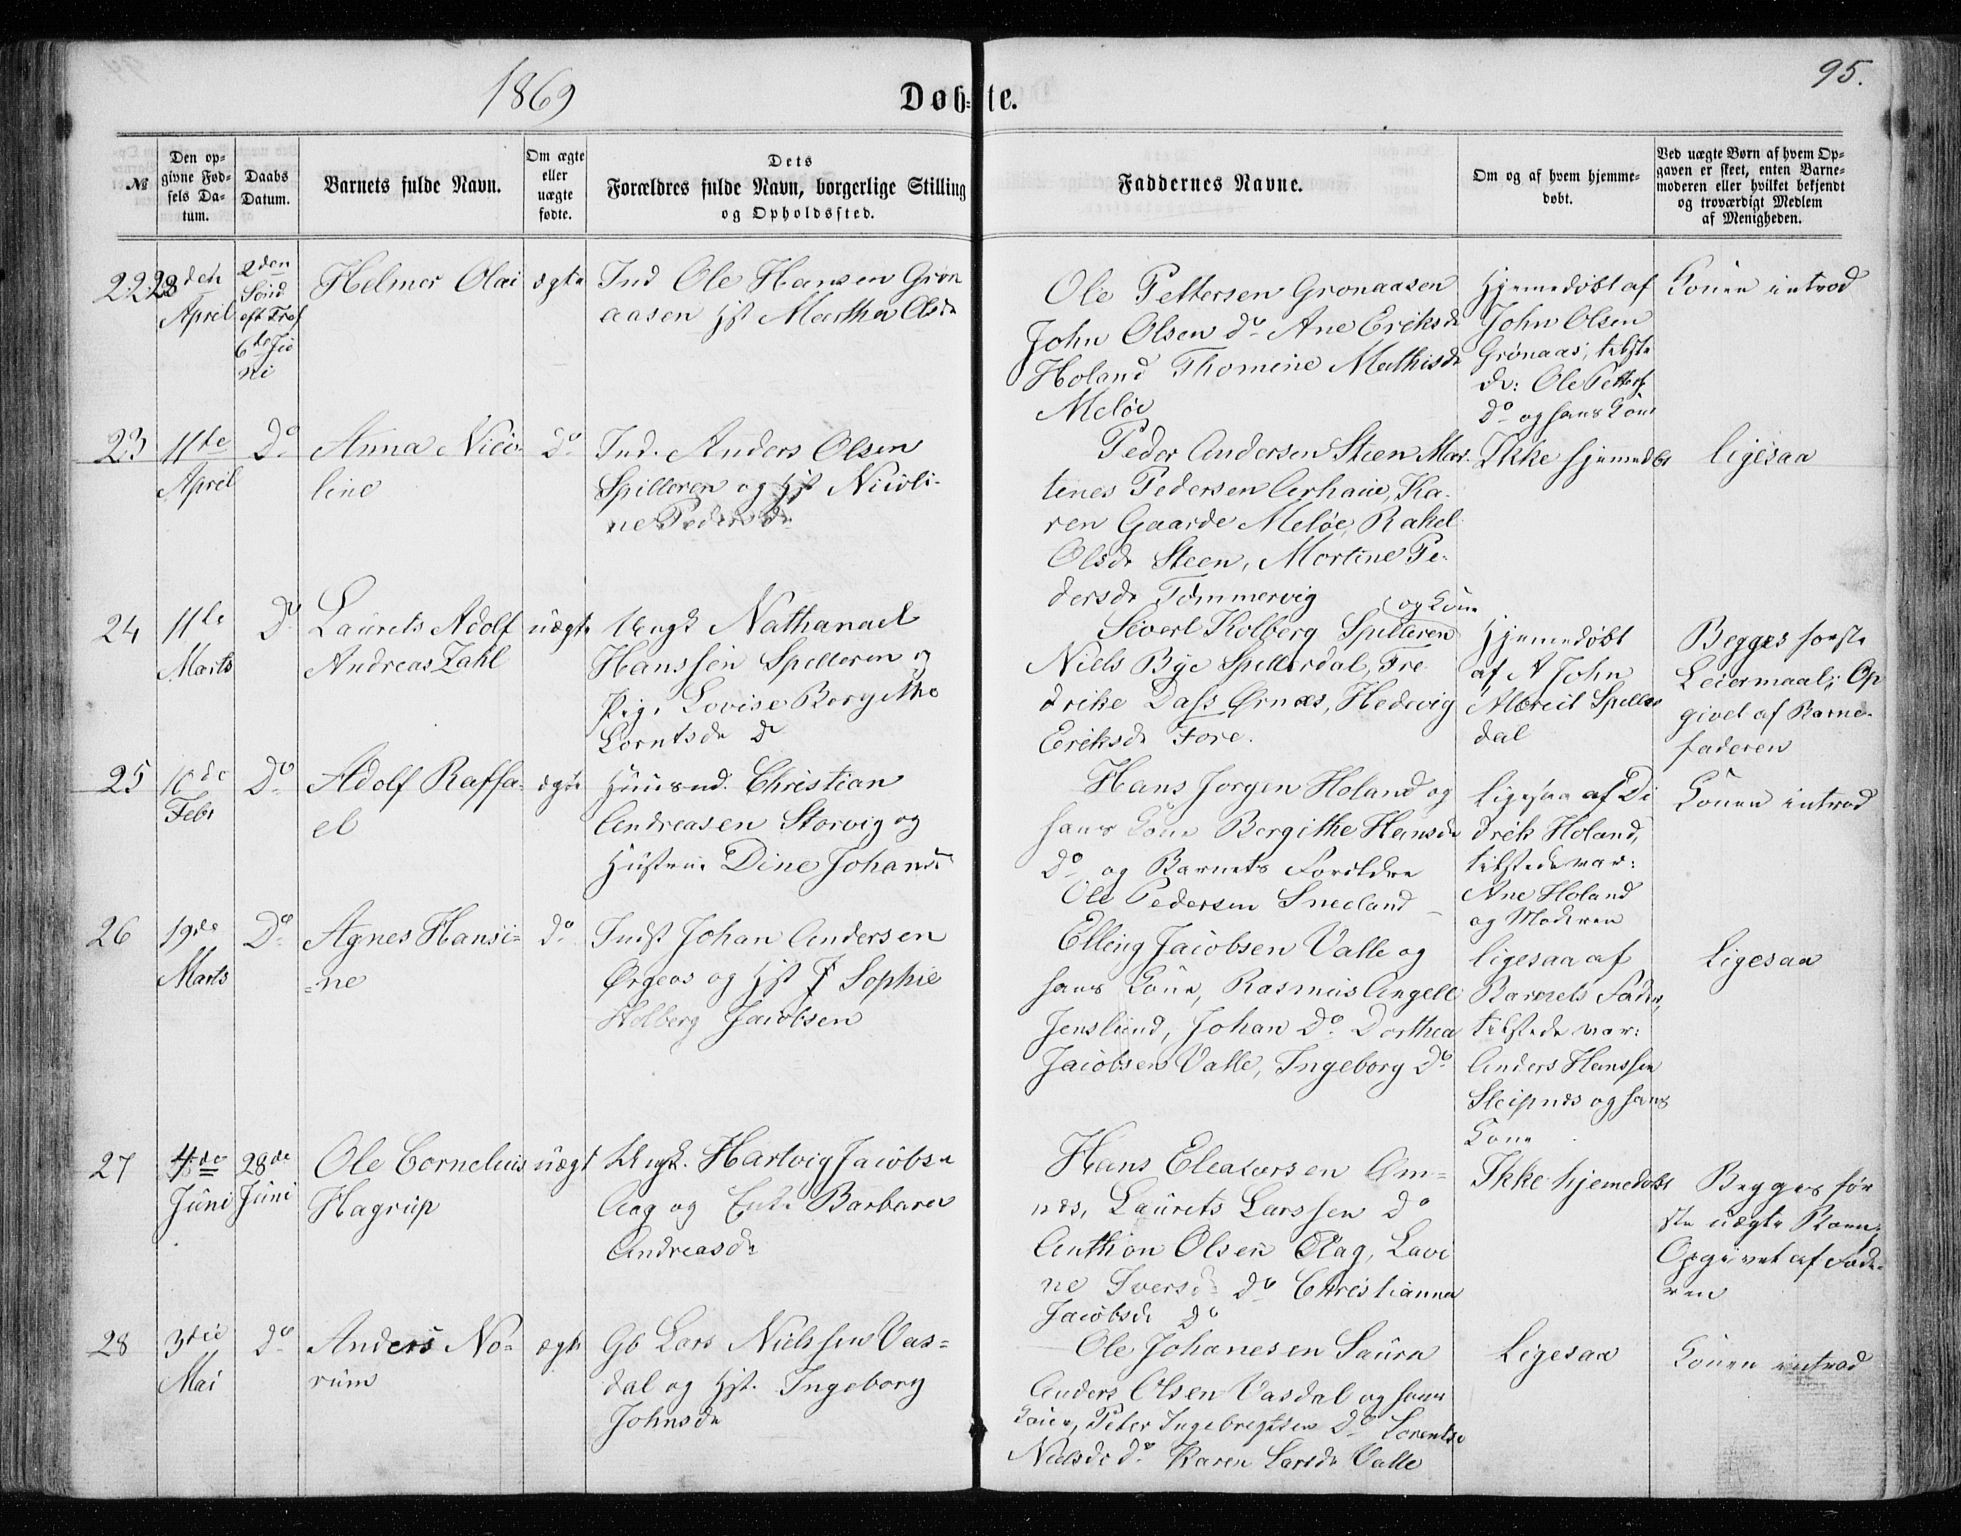 1869
Døb=te.
95.
№
Den op=
givne Fød=
sels Da=
tum.
Daabs
Datum.
Barnets fulde Navn.
Om ægte
eller
uægte
fødte.
Dets
Forældres fulde Navn, borgerlige Stilling
og Opholdssted.
Faddernes Navne.
Om og af hvem hjemme=
døbt.
Ved uægte Børn af hvem Op=
gaven er skeet, enten Barne=
moderen eller hvilket bekjendt
og troværdigt Medlem
af Menigheden.
22
28den
April
2den
Sønd
eft Tref
6te Ju
ni
Helmer Olai
ægte
Ind Ole Hansen Grøn
aasen Hst Martha Olsd
Ole Pettersen Grønaasen
John Olsen do Ane Eriksd
Holand Thomine Mathisd
Meløe
Hjemedøbt af
John Olsen
Grønaas, tilste
de: Ole Petters
Do og hans Kone
Konen introd
23
11te
April
Do
Anna Nico-
line
do
Ind. Anders Olsen
Spilderen og Hst Nicoli-
ne Pedersd
Peder Andersen Steen Mar-
tenes Pedersen Aerhaue, Ka-
ren Gaarde Meløe, Rakel
Olsd Steen, Mortine Pe-
dersd Tømmervig
Ikke hjemedøbt
ligesaa
24
11te
Marts
Do
Laurits Adolf
Andreas Zahl
uægte
Ungk Nathanael
Hanssen Spilderen og
Pig. Lovise Bergithe
Lorntsd do
og Kone
Sivert Kolberg Spilderen
Niels Bye Spilderdal, Fre
drike Dass Ørnæs, Hedevig
Eriksd Fore.
Hjemedøbt
af A John
Meveit Spilder
dal
Begges første
Leiermaal; Op
givet af Barne-
faderen
25
10de
Febr
Do
Adolf Raffa-
el
ægte
Huusmd. Christian
Andreasen Storvig og
Hustrue Dine Johansd
Hans Jørgen Holand og
hans Kone Bergithe Hansd
Do og Barnets Forældre
Ole Pedersen Sneeland
ligesaa af Di
drik Holand,
tilstede var:
Ane Holand
og Moderen
Konen introd
26
19de
Marts
Do
Agnes Hansi=
=ne
do
Indst Johan Andersen
Ørgeos og Hst J Sophie
Holberg Jacobsen
Elling Jacobsen Valle og
hans Kone, Rasmus Angell
Jenslund, Johan Do. Dorthea
Jacobsen Valle, Ingeborg Do
ligesaa af
Barnets Fader,
tilstede var:
Anders Hanssen
Sleipnes og hans
Kone
Ligesaa
27
4de
Juni
28de
Juni
Ole Cornelius
Hagrup
uægt
Ungk. Hartvig Jacobsen
Aag og Enke Barbara
Andreasd
Hans Eleasersen Am=
nes, Laurits Larssen do
Anthon Olsen Aag, Lavi
ne Iversd do Christianna
Jacobsd do
Ikke hjemedøbt
Begges før
ste uægte Barn,
Opgivet af Fade-
ren
28
3die
Mai
do
Anders No=
rum
ægte
Gb Lars Nielssen Vas=
dal og Hst. Ingeborg
Johnsd
Ole Johanesen Saura
Anders Olsen Vasdal og hans
Kone, Peter Ingebregtsen Do Lorentse
Nielsd do Karen Larsd Valle
Ligesaa
Konen introd